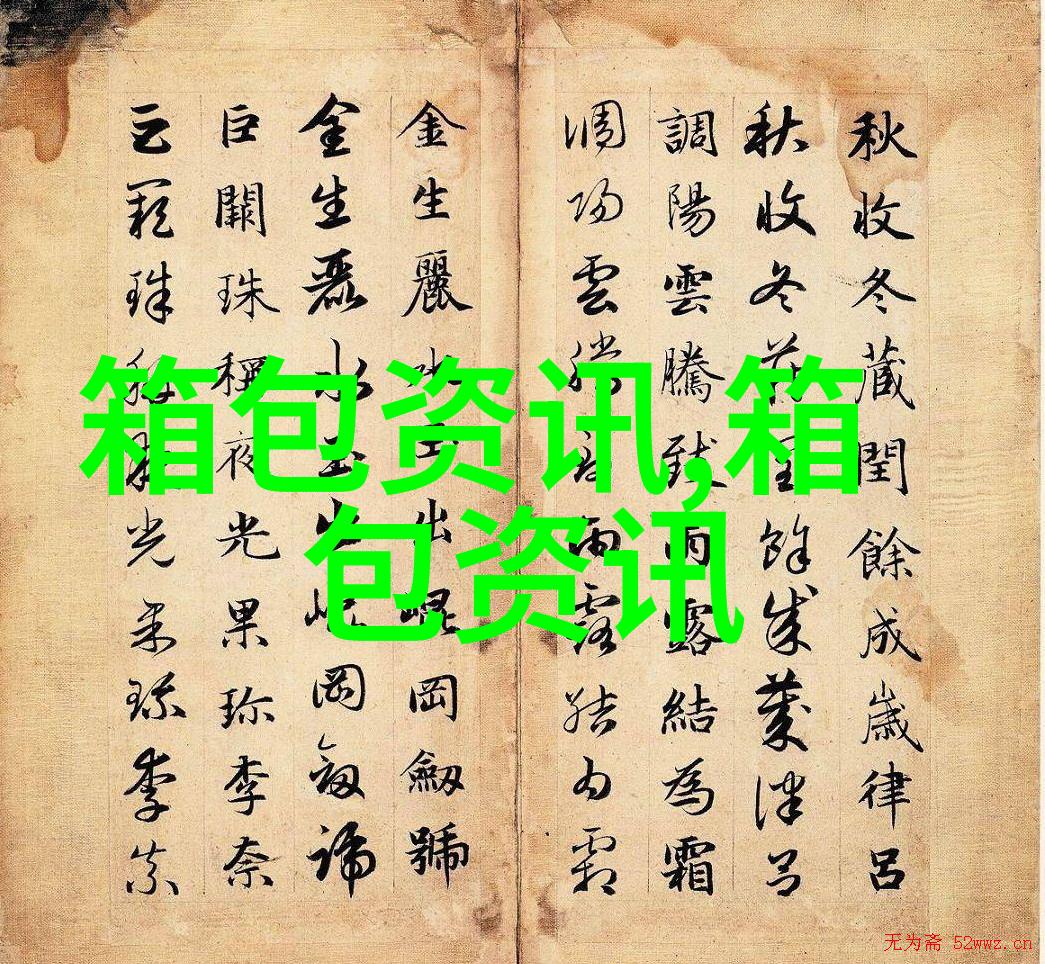 箱包资讯,箱
包资讯
秋收冬藏閏餘成歲律呂
秋收冬藏閏餘成歲律呂
調陽雲騰致雨露結為霜
調陽雲騰致雨露結為霜
金生麗水玉出崐岡劒號
金生麗水玉出崐岡劒號
巨闕珠稱夜光果珍李奈
巨闕珠稱夜光果珍李柰
无为斋 52wwz.cn